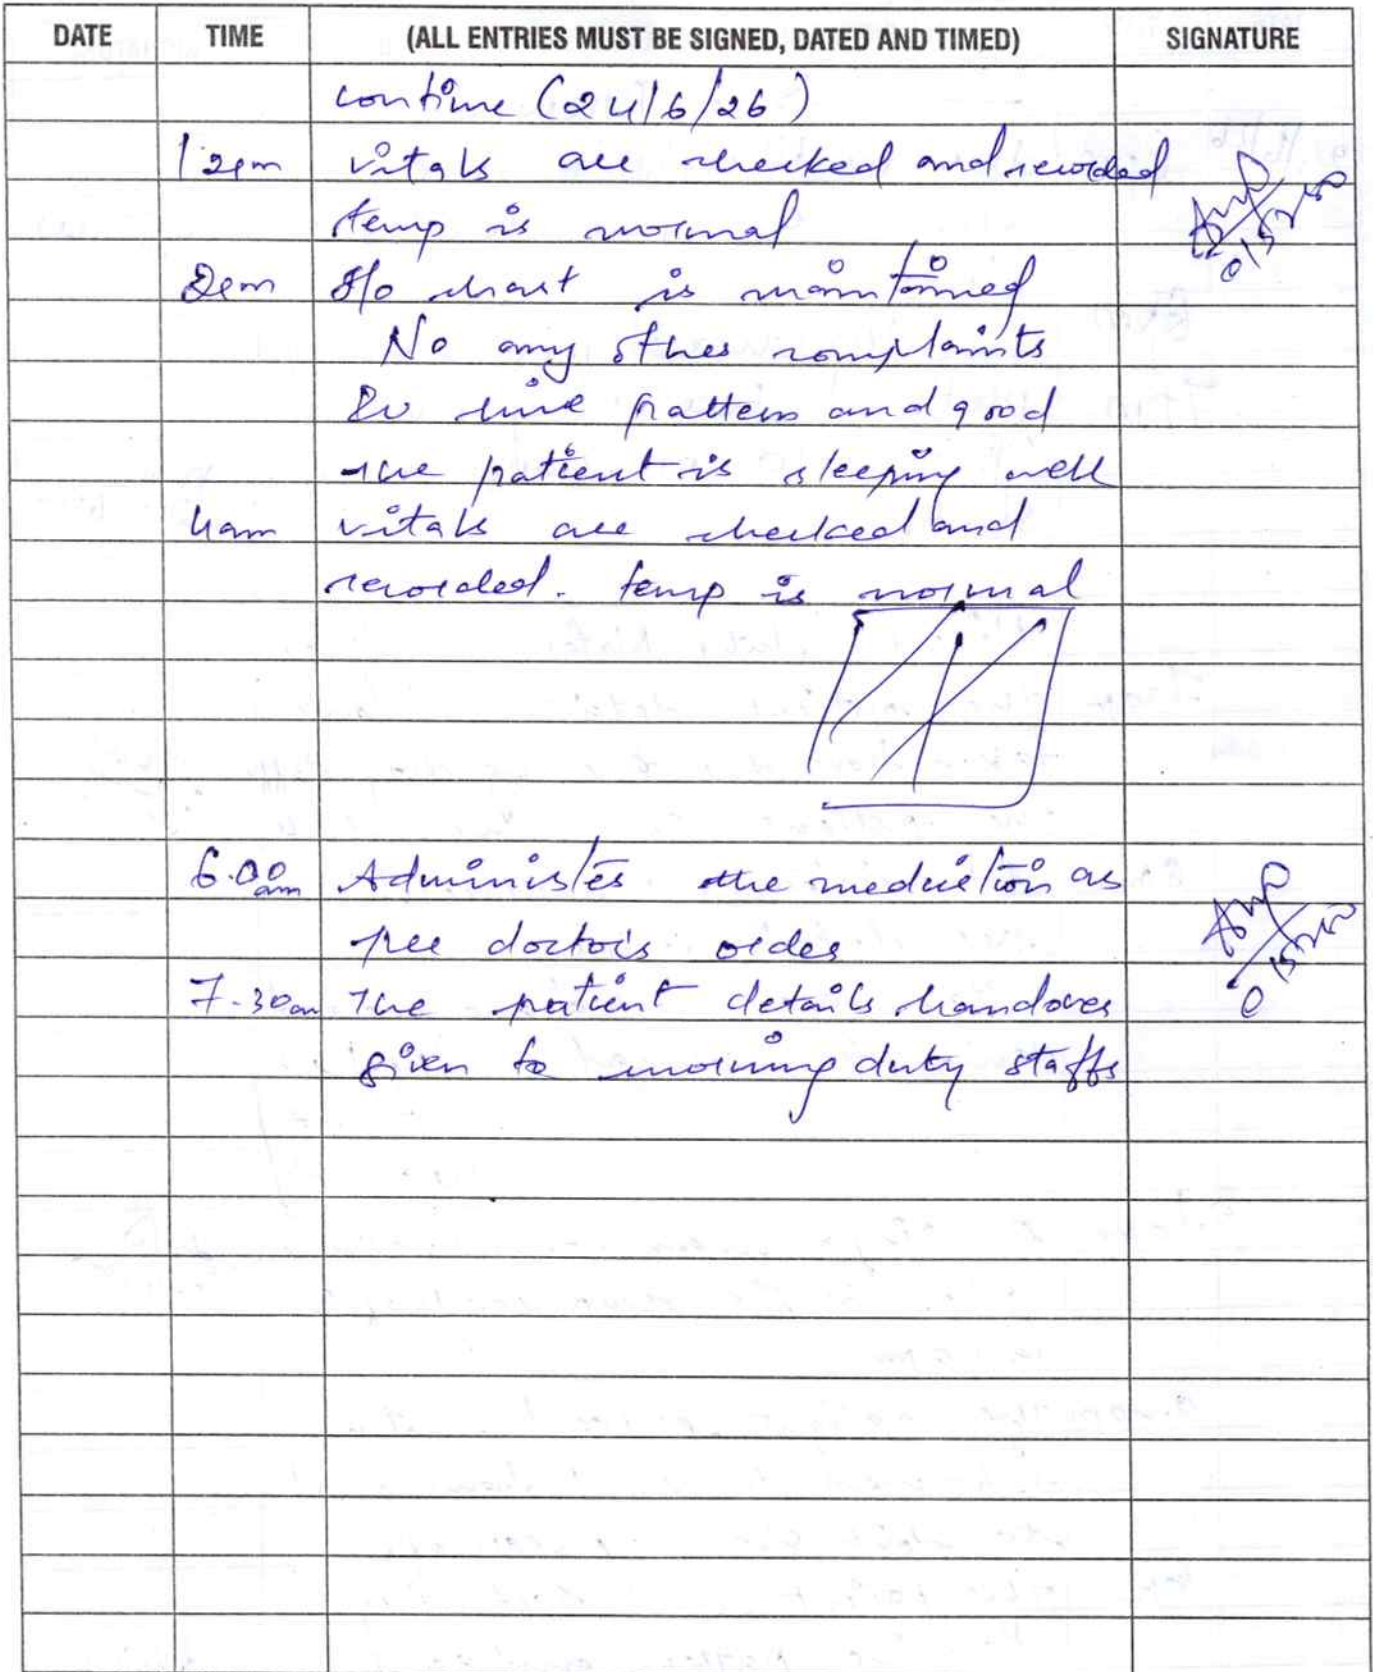 DATE TIME (ALL ENTRIES MUST BE SIGNED, DATED AND TIMED) SIGNATURE
continue (24/6/26)
12am vitals are checked and recorded
temp is normal
2am I/o chart is maintained
No any other complaints
Iv line pattern and good
the patient is sleeping well
4am vitals are checked and
recorded. temp is normal
6.00 am Administer the medication as
per doctor's order
7.30am The patient details handover
given to morning duty staffs